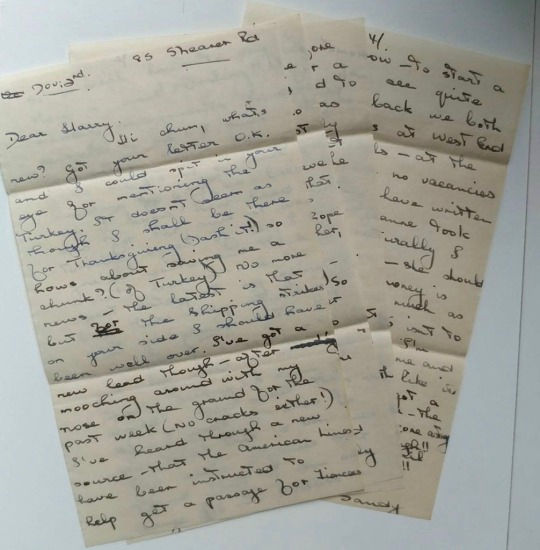 85 Shearer Rd
Nov: 3rd.
Dear Harry.
Hi chum, what's
new? Got your letter O.K.
and I could spit in your
eye for mentioning the
Turkey. It doesn't seem as
though I shall be there
for Thanksgiving (Dash it!) so
hows about saving me a
chunk? (of Turkey) No more
news - the latest is that
but for the shipping strikes
on your side I should have
been well over. I've got a
new lead though - after
mooching around with my
nose on the ground for the
past week (No cracks either!)
I've heard through a new
source - that the American Lines
have been instructed to
help get a passage for fiances
4/
ow - to start a
see quite
back we both
at West End
ls - at the
no vacancies
have written
anne took
urally I
- she should
money is
much as
isn't to
I'm
me and
like is
got a
- the
one essay
Sandy